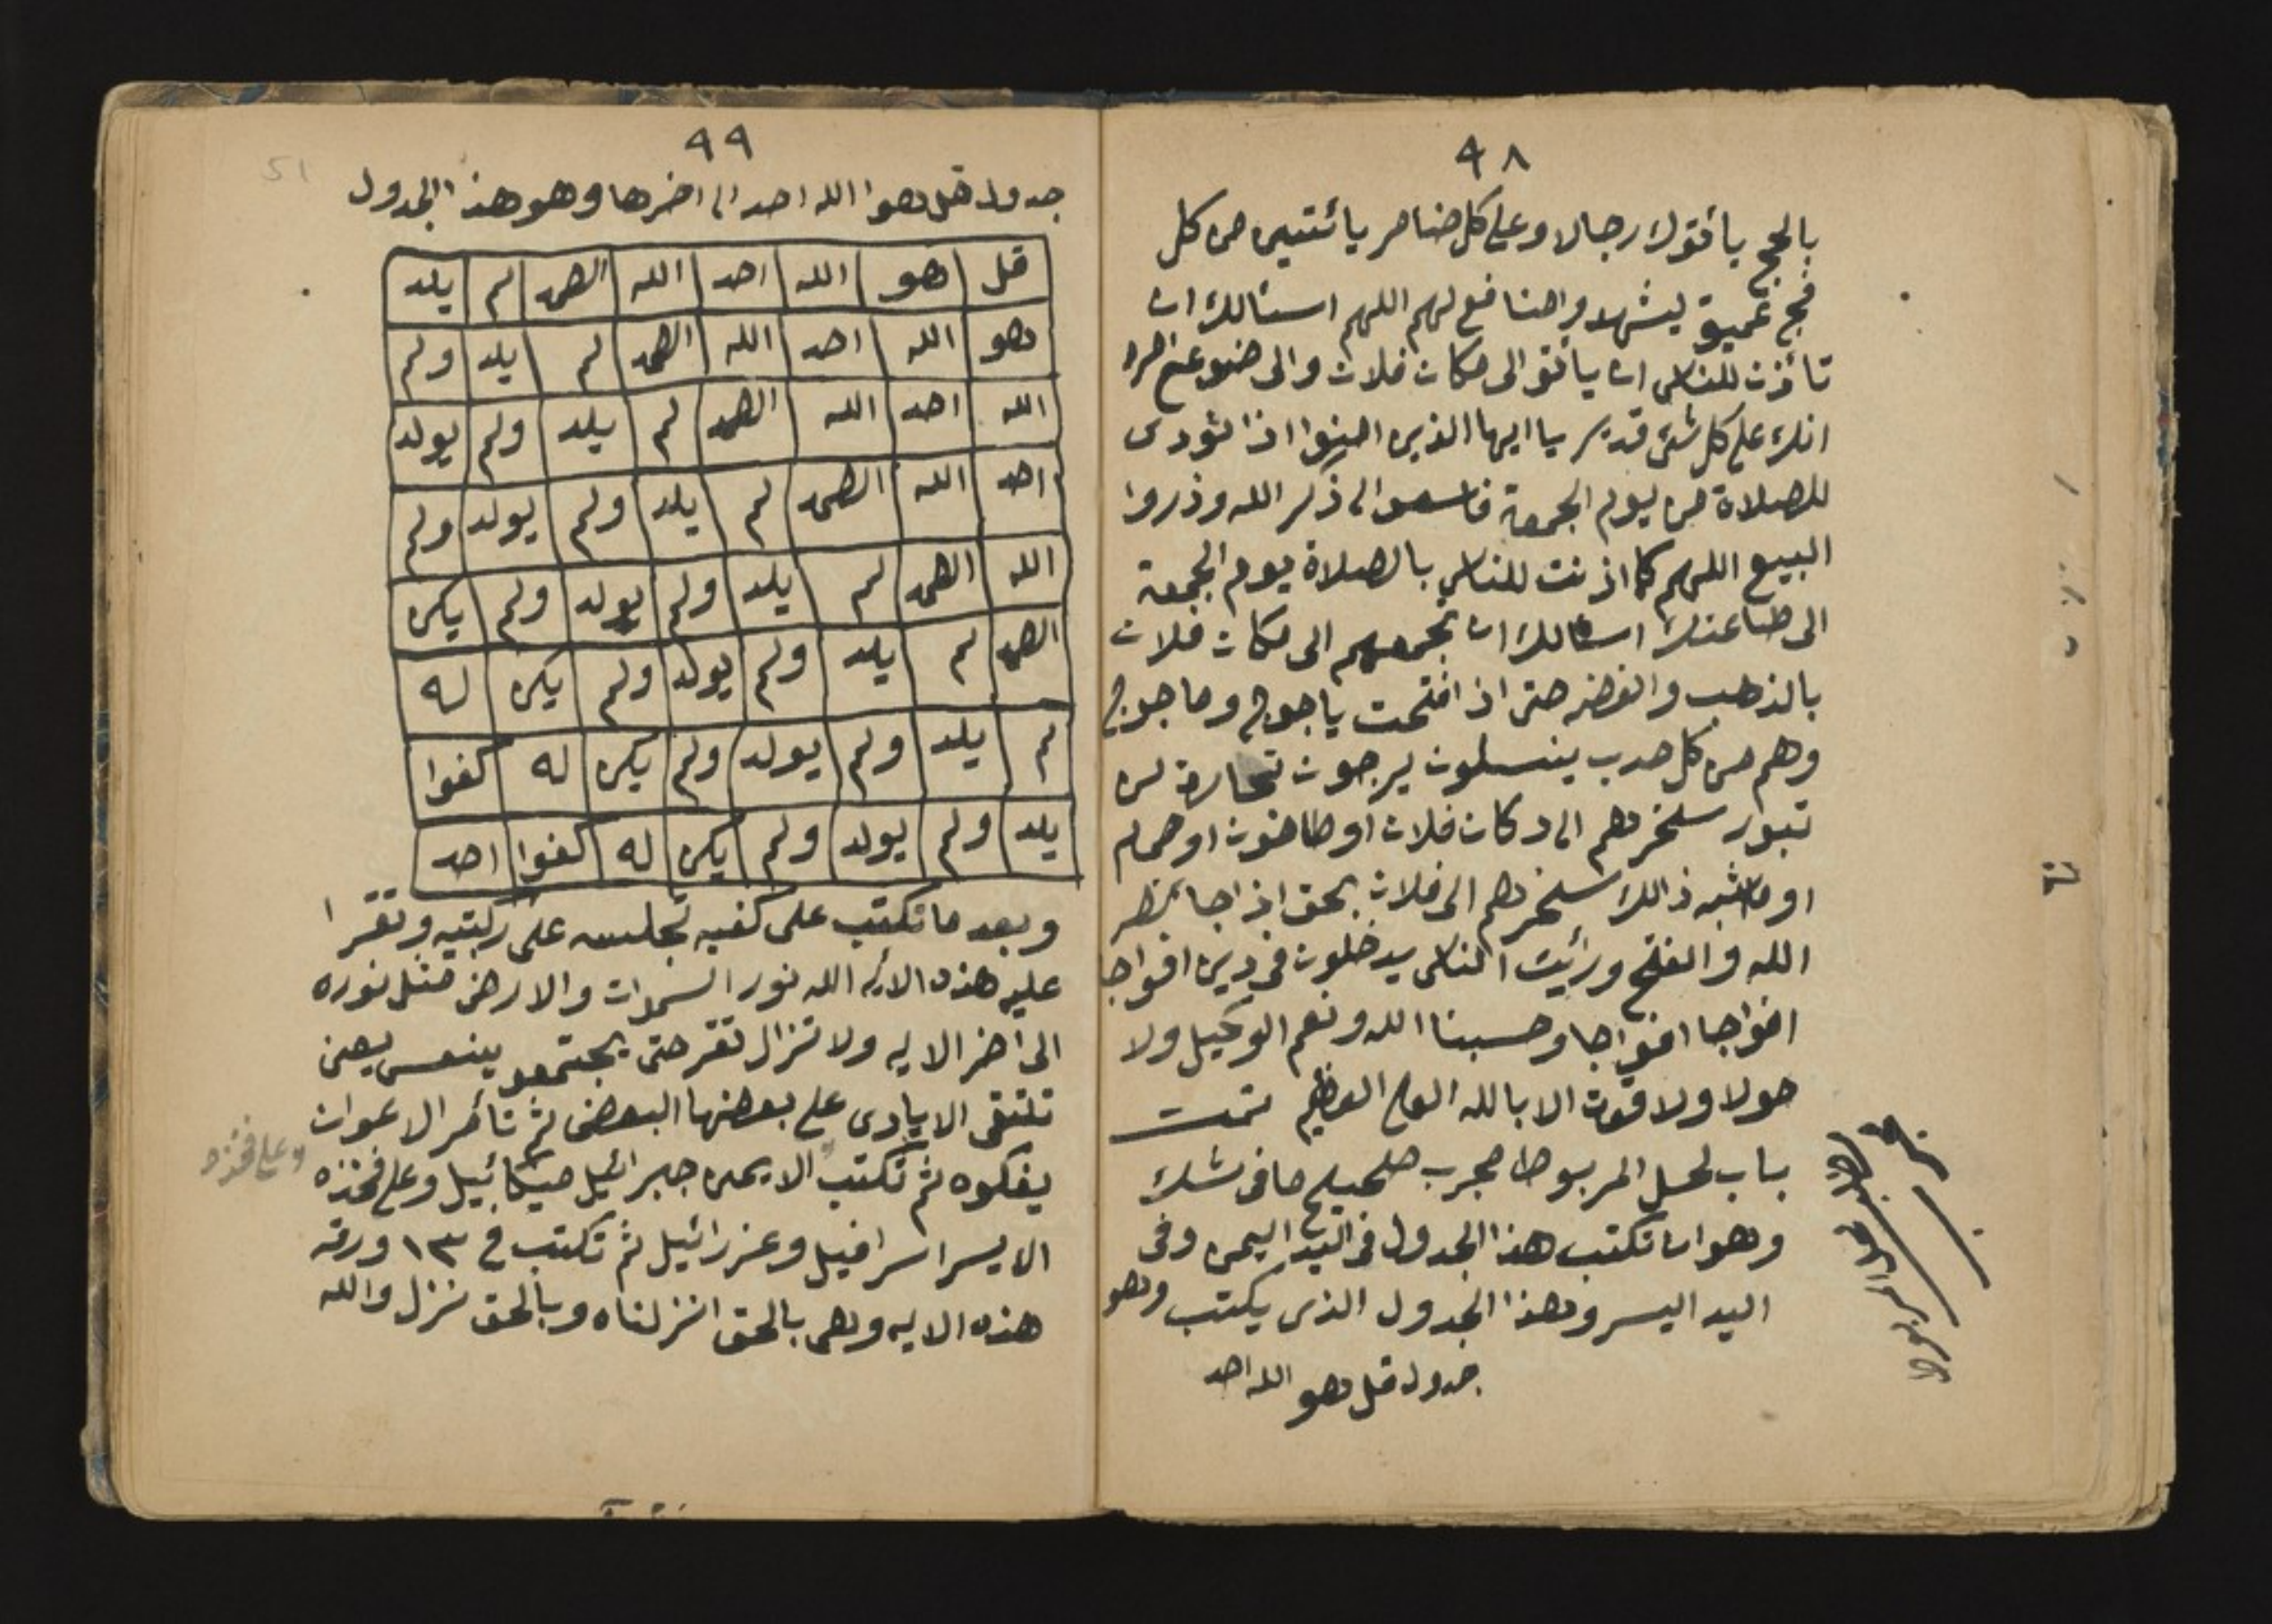 ٩٨
بالحج يأتوك رجالا وعلى كل ضامر يائتين من كل
فج عميق ليشهدوا منافع لهم اللهم اسئالك ان
تأذن للناس ان ياتو الى مكان فلان والى
انك على كل شئ قدير يا ايها الذين امنوا اذا نودى
للصلاة من يوم الجمعة فاسعو الى ذكر الله وذروا
البيع اللهم كما اذنت للناس بالصلاة يوم الجمعة
الى طاعتك اسئالك ان تجمعهم الى مكان فلان
بالذهب والفضه حتى اذا فتحت ياجوج وماجوج
وهم من كل حدب ينسلون يرجون تجارة لن
تبور سخرهم الى دكان فلان او طاحون او حمام
او ماشبه ذالك سخرهم الى فلان بحق اذا جا نصر
الله والفتح ورئيت الناس يدخلون فى دين افواجا
افواجا افواجا وحسبنا الله ونعم الوكيل ولا
حولا ولا قوت الا بالله العلى العظيم تمت
باب لحل المربوط مجرب صحيح مافى شك
وهو ان تكتب هذا الجدول فى اليد اليمن وفى
اليد اليسر وهذا الجدول الذى يكتب وهو
جدول قل هو الله احد
باب لحل المربوط
مجرب
٩٩
51
جدول قل هوا الله احد الى اخرها وهو هذا الجدول
قل هو الله احد الله الصمد لم يلد
هو الله احد الله الصمد لم يلد ولم
الله احد الله الصمد لم يلد ولم يولد
احد الله الصمد لم يلد ولم يولد ولم
الله الصمد لم يلد ولم يولد ولم يكن
الصمد لم يلد ولم يولد ولم يكن له
لم يلد ولم يولد ولم يكن له كفوا
يلد ولم يولد ولم يكن له كفوا احد
وبعد ما تكتب على كفيه تجلسه على ركبتيه وتقرا
عليه هذه الايه الله نور السموات والارض مثل نوره
الى اخر الايه ولا تزال تقر حتى يجتمعو ينعس يعنى
تلتقى الايادى على بعضها البعض ثم تأمر الاعوان
يفكوه ثم تكتب الايمن جبرائيل ميكائيل وعلى فخذه
وعلى فخذه
الايسر اسرافيل وعزرائيل ثم تكتب فى ١٣ ورقه
هذه الايه وهى بالحق انزلناه وبالحق نزل والله